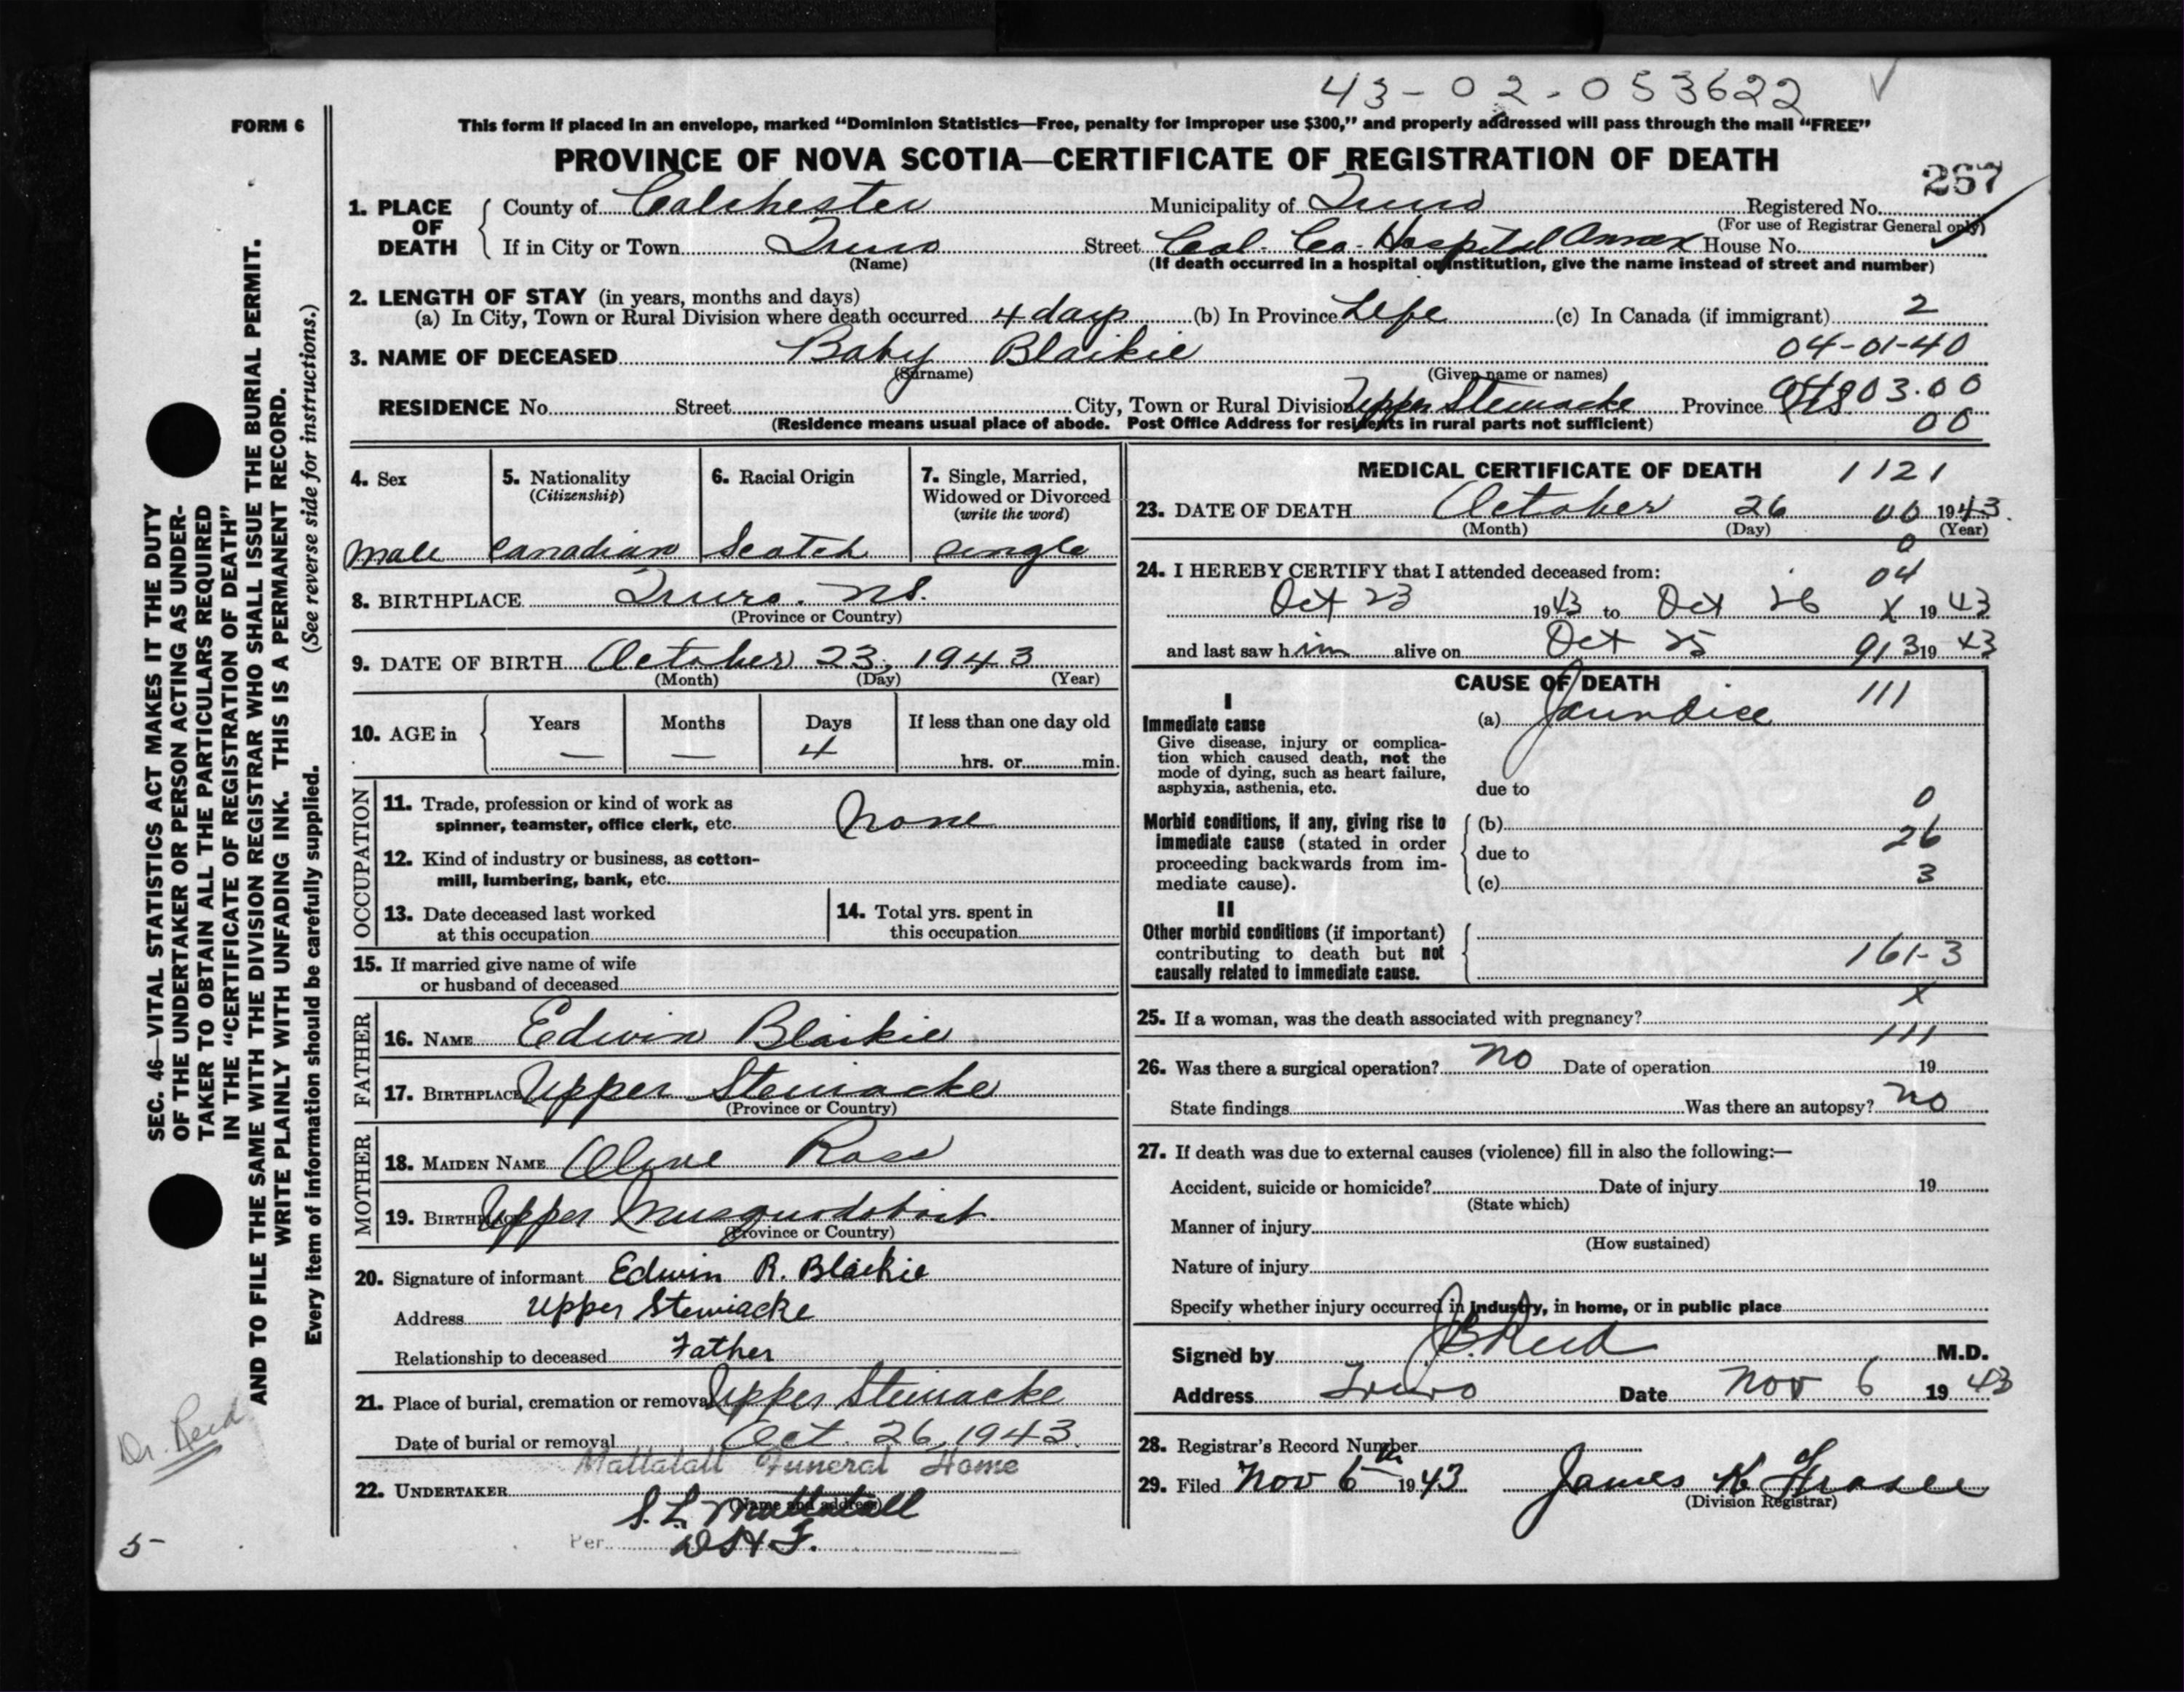 43-02-053622
FORM 6
This form if placed in an envelope, marked "Dominion Statistics—Free, penalty for improper use $300," and properly addressed will pass through the mail "FREE"
PROVINCE OF NOVA SCOTIA—CERTIFICATE OF REGISTRATION OF DEATH
267
1. PLACE OF DEATH County of Colchester Municipality of Truro Registered No.
(For use of Registrar General only)
If in City or Town Truro Street Col. Co. Hospital Annex House No.
(Name) (If death occurred in a hospital or institution, give the name instead of street and number)
2. LENGTH OF STAY (in years, months and days)
(a) In City, Town or Rural Division where death occurred 4 days (b) In Province Life (c) In Canada (if immigrant) 2
3. NAME OF DECEASED Baby Blaikie 04-01-40
(Surname) (Given name or names)
RESIDENCE No. Street City, Town or Rural Division Upper Stewiacke Province N.S. 03.00
(Residence means usual place of abode. Post Office Address for residents in rural parts not sufficient) 00
4. Sex
male
5. Nationality
(Citizenship)
Canadian
6. Racial Origin
Scotch
7. Single, Married,
Widowed or Divorced
(write the word)
single
8. BIRTHPLACE Truro. N.S.
(Province or Country)
9. DATE OF BIRTH October 23, 1943
(Month) (Day) (Year)
10. AGE in Years Months Days If less than one day old
— — 4 hrs. or min.
OCCUPATION
11. Trade, profession or kind of work as
spinner, teamster, office clerk, etc. None
12. Kind of industry or business, as cotton-
mill, lumbering, bank, etc.
13. Date deceased last worked
at this occupation
14. Total yrs. spent in
this occupation
15. If married give name of wife
or husband of deceased
FATHER
16. NAME Edwin Blaikie
17. BIRTHPLACE Upper Stewiacke
(Province or Country)
MOTHER
18. MAIDEN NAME Olive Ross
19. BIRTHPLACE Upper Musquodoboit
(Province or Country)
20. Signature of informant Edwin R. Blaikie
Address Upper Stewiacke
Relationship to deceased Father
21. Place of burial, cremation or removal Upper Stewiacke
Date of burial or removal Oct. 26, 1943.
Mattatall Funeral Home
22. UNDERTAKER
(Name and address)
S. L. Mattatall
Per
MEDICAL CERTIFICATE OF DEATH 1121
23. DATE OF DEATH October 26 00 1943.
(Month) (Day) (Year)
0
24. I HEREBY CERTIFY that I attended deceased from: 04
Oct 23 1943 to Oct 26 X 1943
and last saw him alive on Oct 25 913 1943
CAUSE OF DEATH
I
Immediate cause (a) Jaundice 111
Give disease, injury or complica-
tion which caused death, not the
mode of dying, such as heart failure,
asphyxia, asthenia, etc. due to
0
Morbid conditions, if any, giving rise to (b)
immediate cause (stated in order due to 26
proceeding backwards from im-
mediate cause). (c) 3
II
Other morbid conditions (if important)
contributing to death but not
causally related to immediate cause. 161-3
X
25. If a woman, was the death associated with pregnancy?
111
26. Was there a surgical operation? No Date of operation 19
State findings Was there an autopsy? No
27. If death was due to external causes (violence) fill in also the following:—
Accident, suicide or homicide? Date of injury 19
(State which)
Manner of injury
(How sustained)
Nature of injury
Specify whether injury occurred in industry, in home, or in public place
Signed by J.B. Reid M.D.
Address Truro Date Nov 6 1943
28. Registrar's Record Number
29. Filed Nov 6th 1943 James K Fraser
(Division Registrar)
SEC. 46—VITAL STATISTICS ACT MAKES IT THE DUTY
OF THE UNDERTAKER OR PERSON ACTING AS UNDER-
TAKER TO OBTAIN ALL THE PARTICULARS REQUIRED
IN THE "CERTIFICATE OF REGISTRATION OF DEATH"
AND TO FILE THE SAME WITH THE DIVISION REGISTRAR WHO SHALL ISSUE THE BURIAL PERMIT.
WRITE PLAINLY WITH UNFADING INK. THIS IS A PERMANENT RECORD.
Every item of information should be carefully supplied. (See reverse side for instructions.)
Dr. Reid
5-